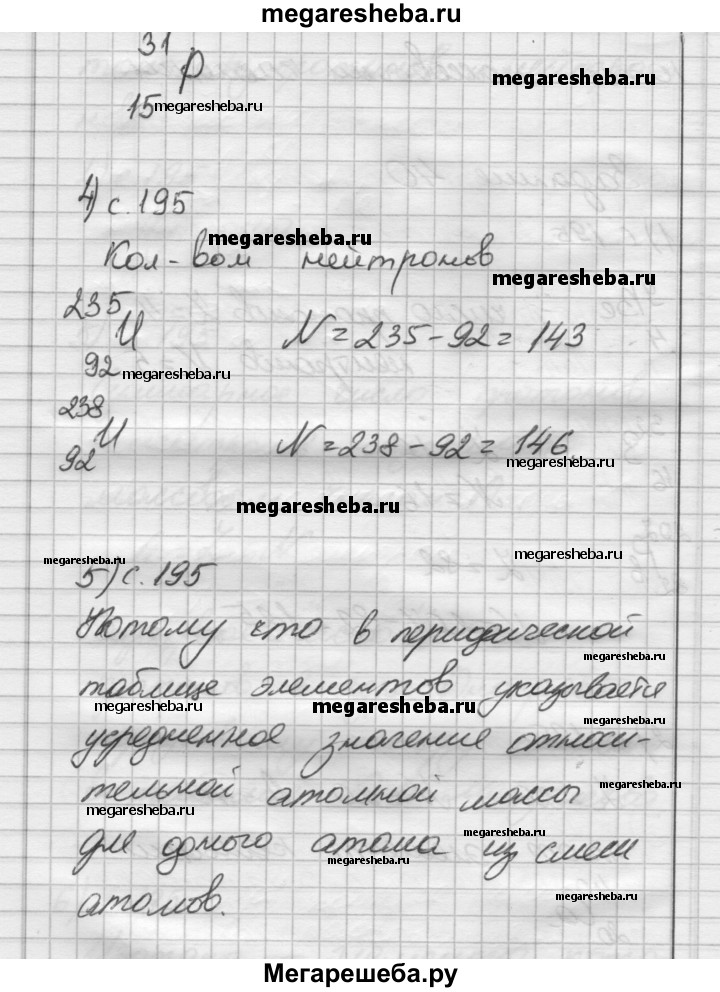 megaresheba.ru
31
P
megaresheba.ru
15 megaresheba.ru
4) с. 195
megaresheba.ru
Кол-вом нейтронов
megaresheba.ru
235
U N = 235 - 92 = 143
92 megaresheba.ru
238
U N = 238 - 92 = 146
92 megaresheba.ru
megaresheba.ru
megaresheba.ru
megaresheba.ru
5) с. 195
Потому что в периодической
megaresheba.ru
таблице элементов указывается
megaresheba.ru megaresheba.ru
megaresheba.ru
усредненное значение относи-
тельной атомной массы
megaresheba.ru
megaresheba.ru
megaresheba.ru
для одного атома из смеси
megaresheba.ru
megaresheba.ru
атомов.
Мегарешеба.ру